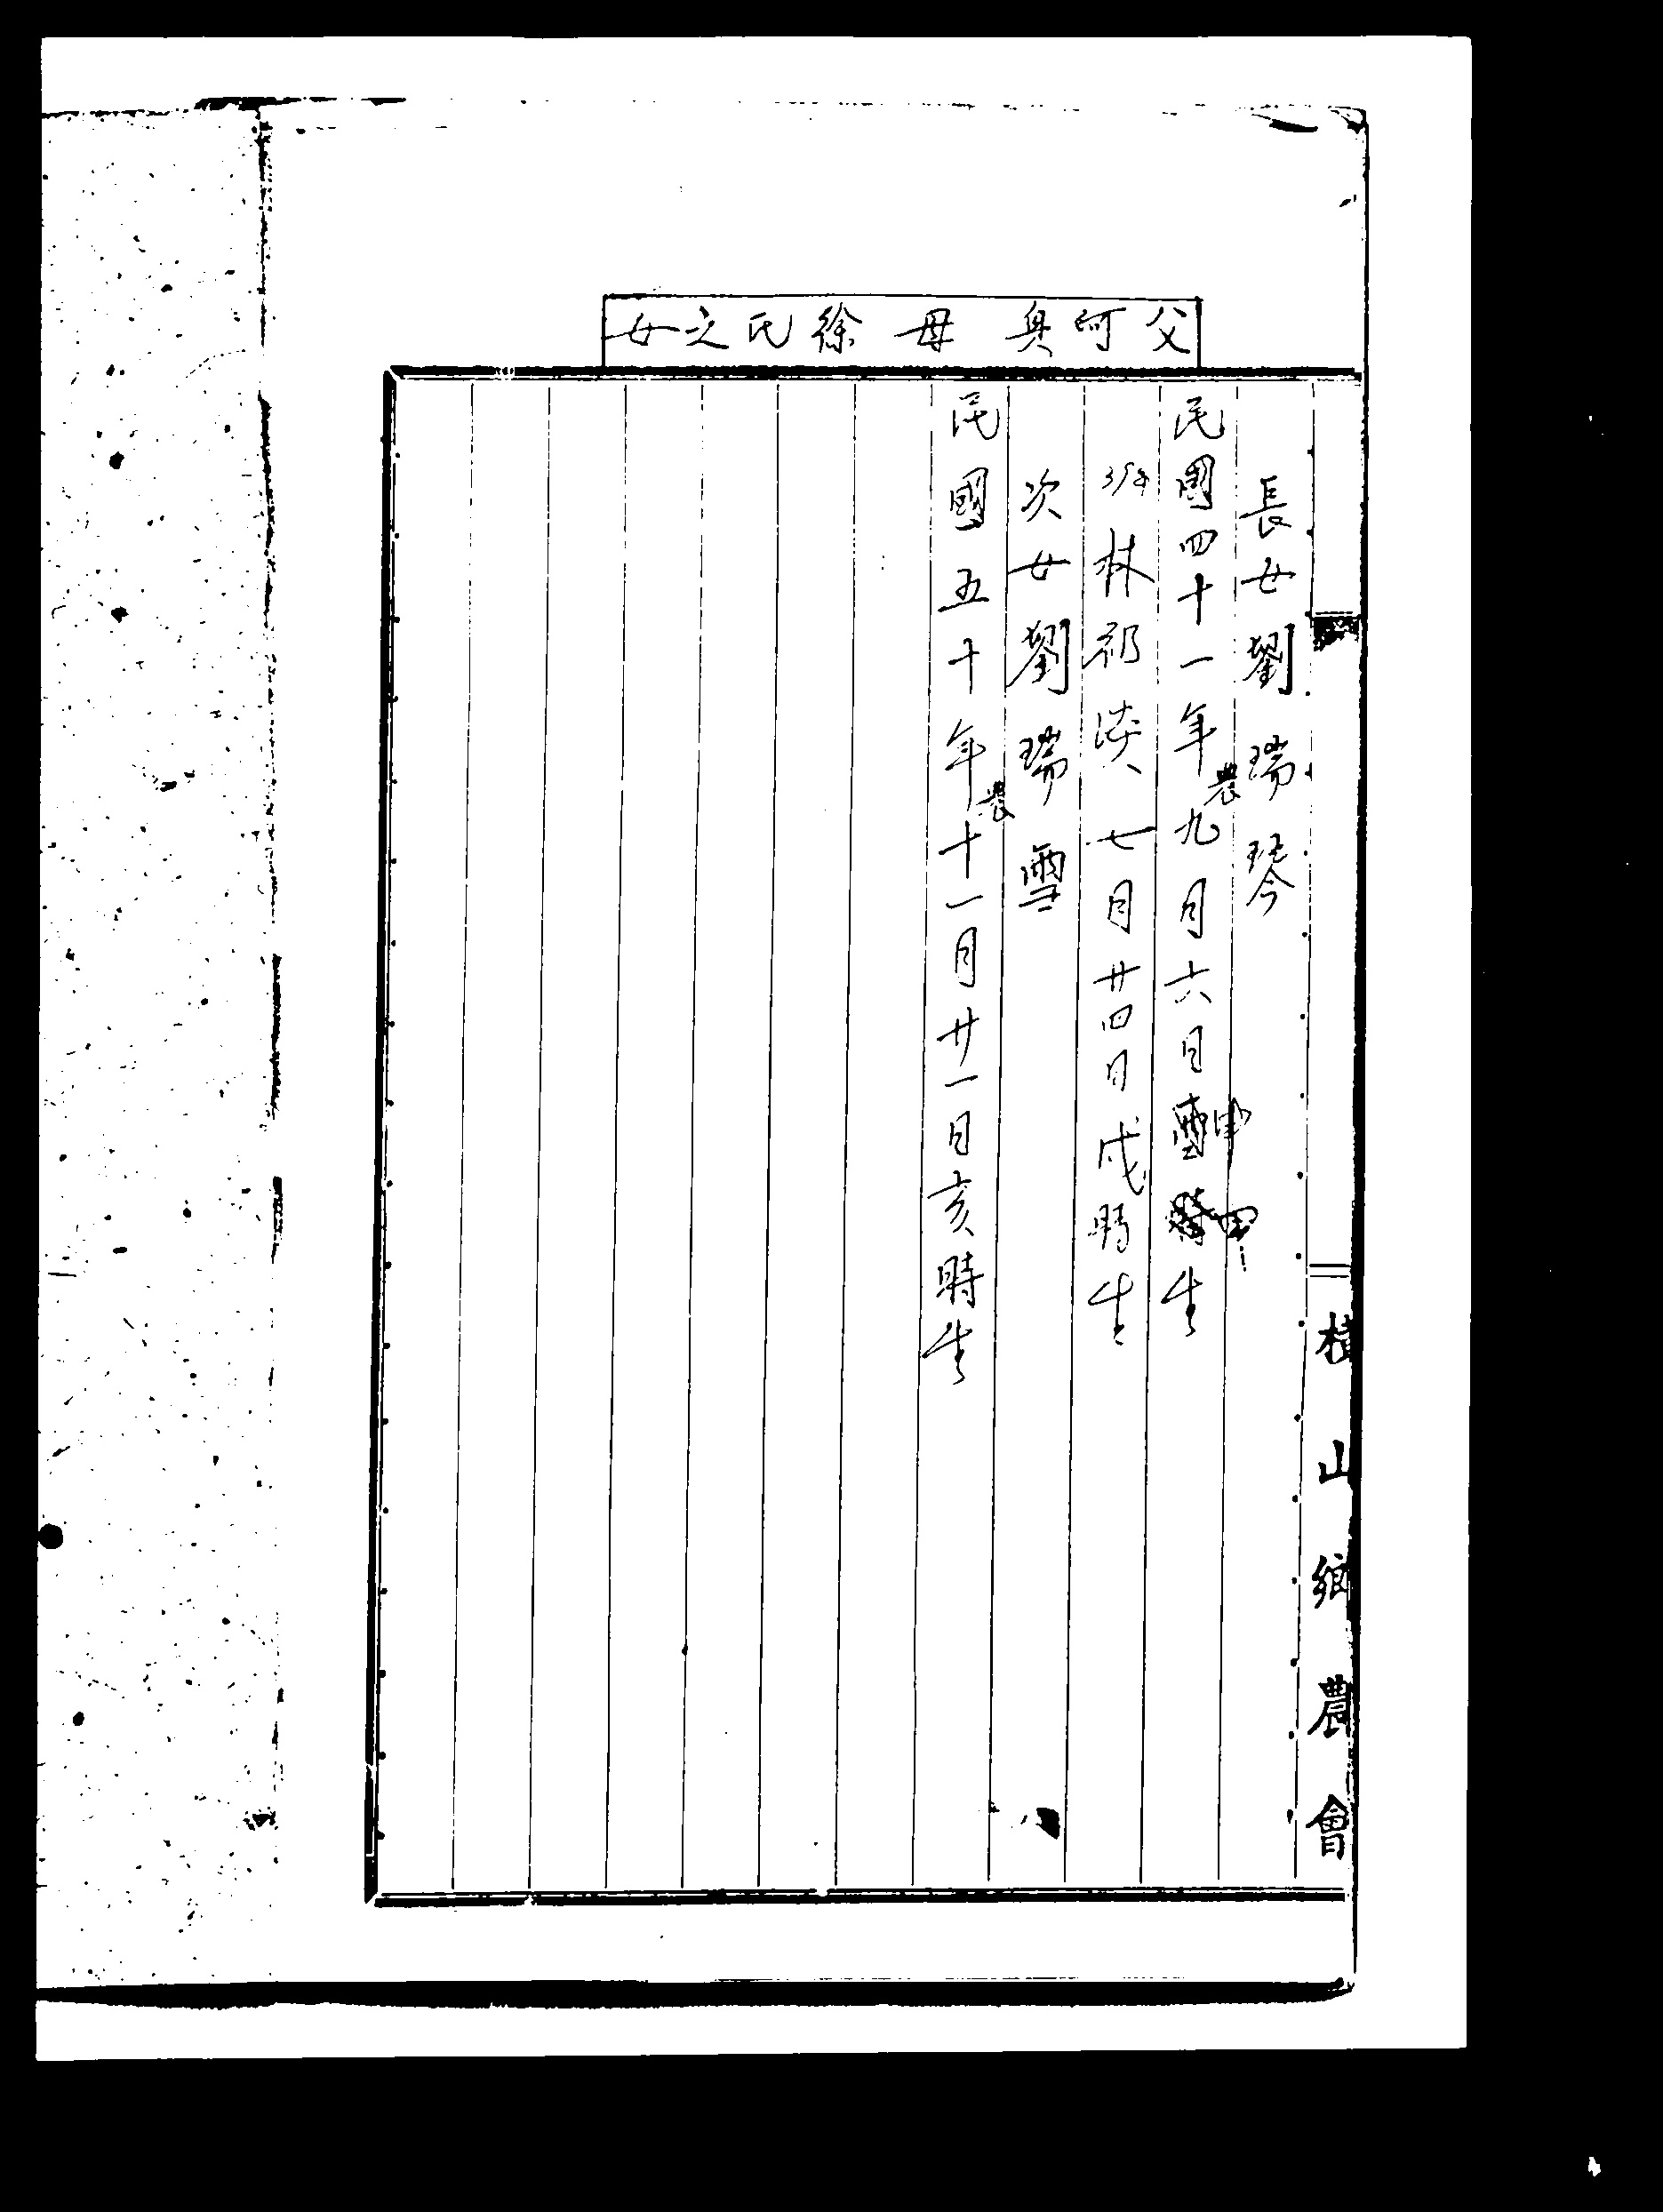 父阿興 母徐氏之女
長女劉瑞琴
民國四十一年農九月六日申時生
39年林祁淡七月廿四日戌時生
次女劉瑞雪
民國五十年農十一月廿一日亥時生
橫山鄉農會